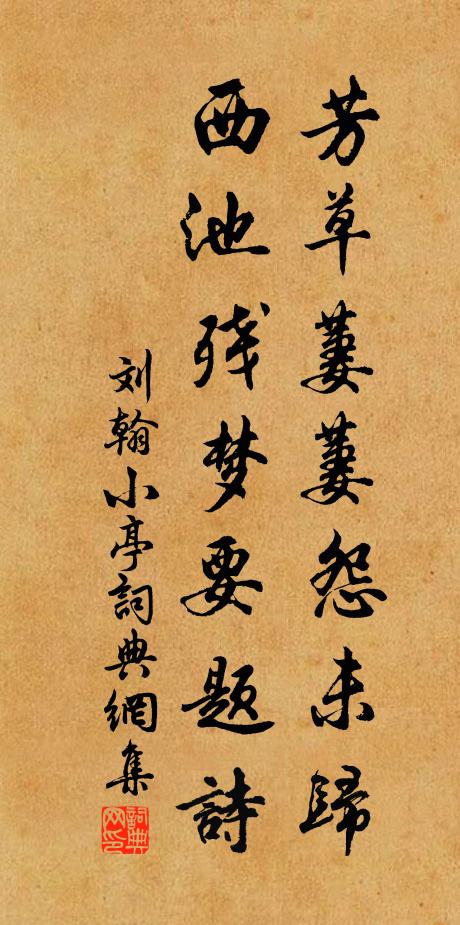 芳草萋萋怨未歸
西池残梦要题詩
刘翰小亭詞典網集
詞典网印